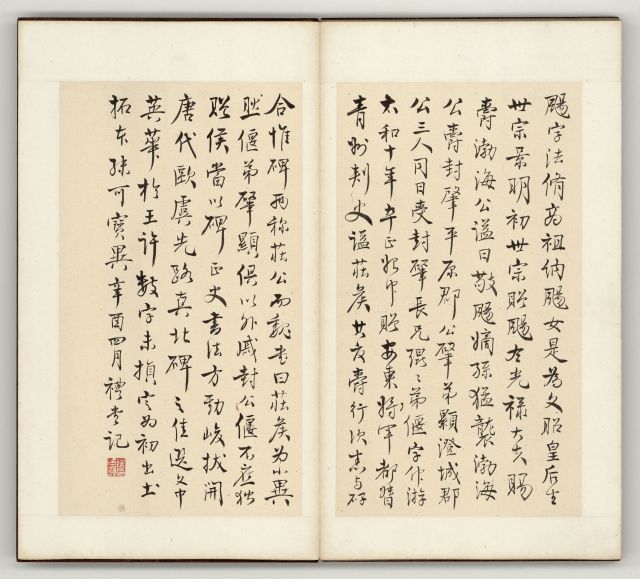 颺字法脩高祖納颺女是為文昭皇后生
世宗景明初世宗贈颺左光祿大夫賜
爵渤海公諡曰敬颺嫡孫猛襲渤海
公爵封肇平原郡公肇弟顯澄城郡
公三人同日受封肇長兄琨琨弟偃字仲游
太和十年卒正始中贈安東將軍都督
青州刺史諡莊侯其歲壽行次悉与碑
合惟碑再稱莊公而魏書曰莊侯為小異
耳偃弟肇顯俱以外戚封公偃不應獨
贈侯當以碑正史書法方勁峻拔開
唐代歐虞先路真北碑之佳選文中
英華於王許數字未損定為初出土
拓本殊可寶異辛酉四月禮堂記